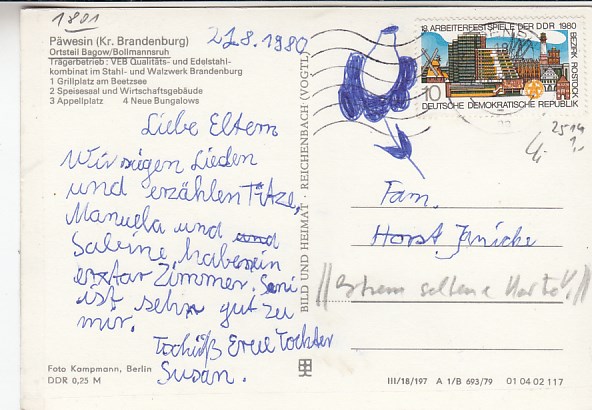 1801
Päwesin (Kr. Brandenburg)
Ortsteil Bagow/Bollmannsruh
Trägerbetrieb: VEB Qualitäts- und Edelstahl-
kombinat im Stahl- und Walzwerk Brandenburg
1 Grillplatz am Beetzsee
2 Speisesaal und Wirtschaftsgebäude
3 Appellplatz 4 Neue Bungalows
21.8.1980
Liebe Eltern
Wir sügen Lieden
und erzählen Titze,
Manuela und and
Sabine haben ein
extar Zimmer. Sani
ist sehr gut zu
mir.
Tschüß Eree Tochter
Susan.
Foto Kampmann, Berlin
DDR 0,25 M
BILD UND HEIMAT · REICHENBACH (VOGTL)
18. ARBEITERFESTSPIELE DER DDR 1980
BEZIRK ROSTOCK
10
DEUTSCHE DEMOKRATISCHE REPUBLIK
2514
1,-
Fam.
Horst Janicke
seltene Karte
III/18/197 A 1/B 693/79 01 04 02 117